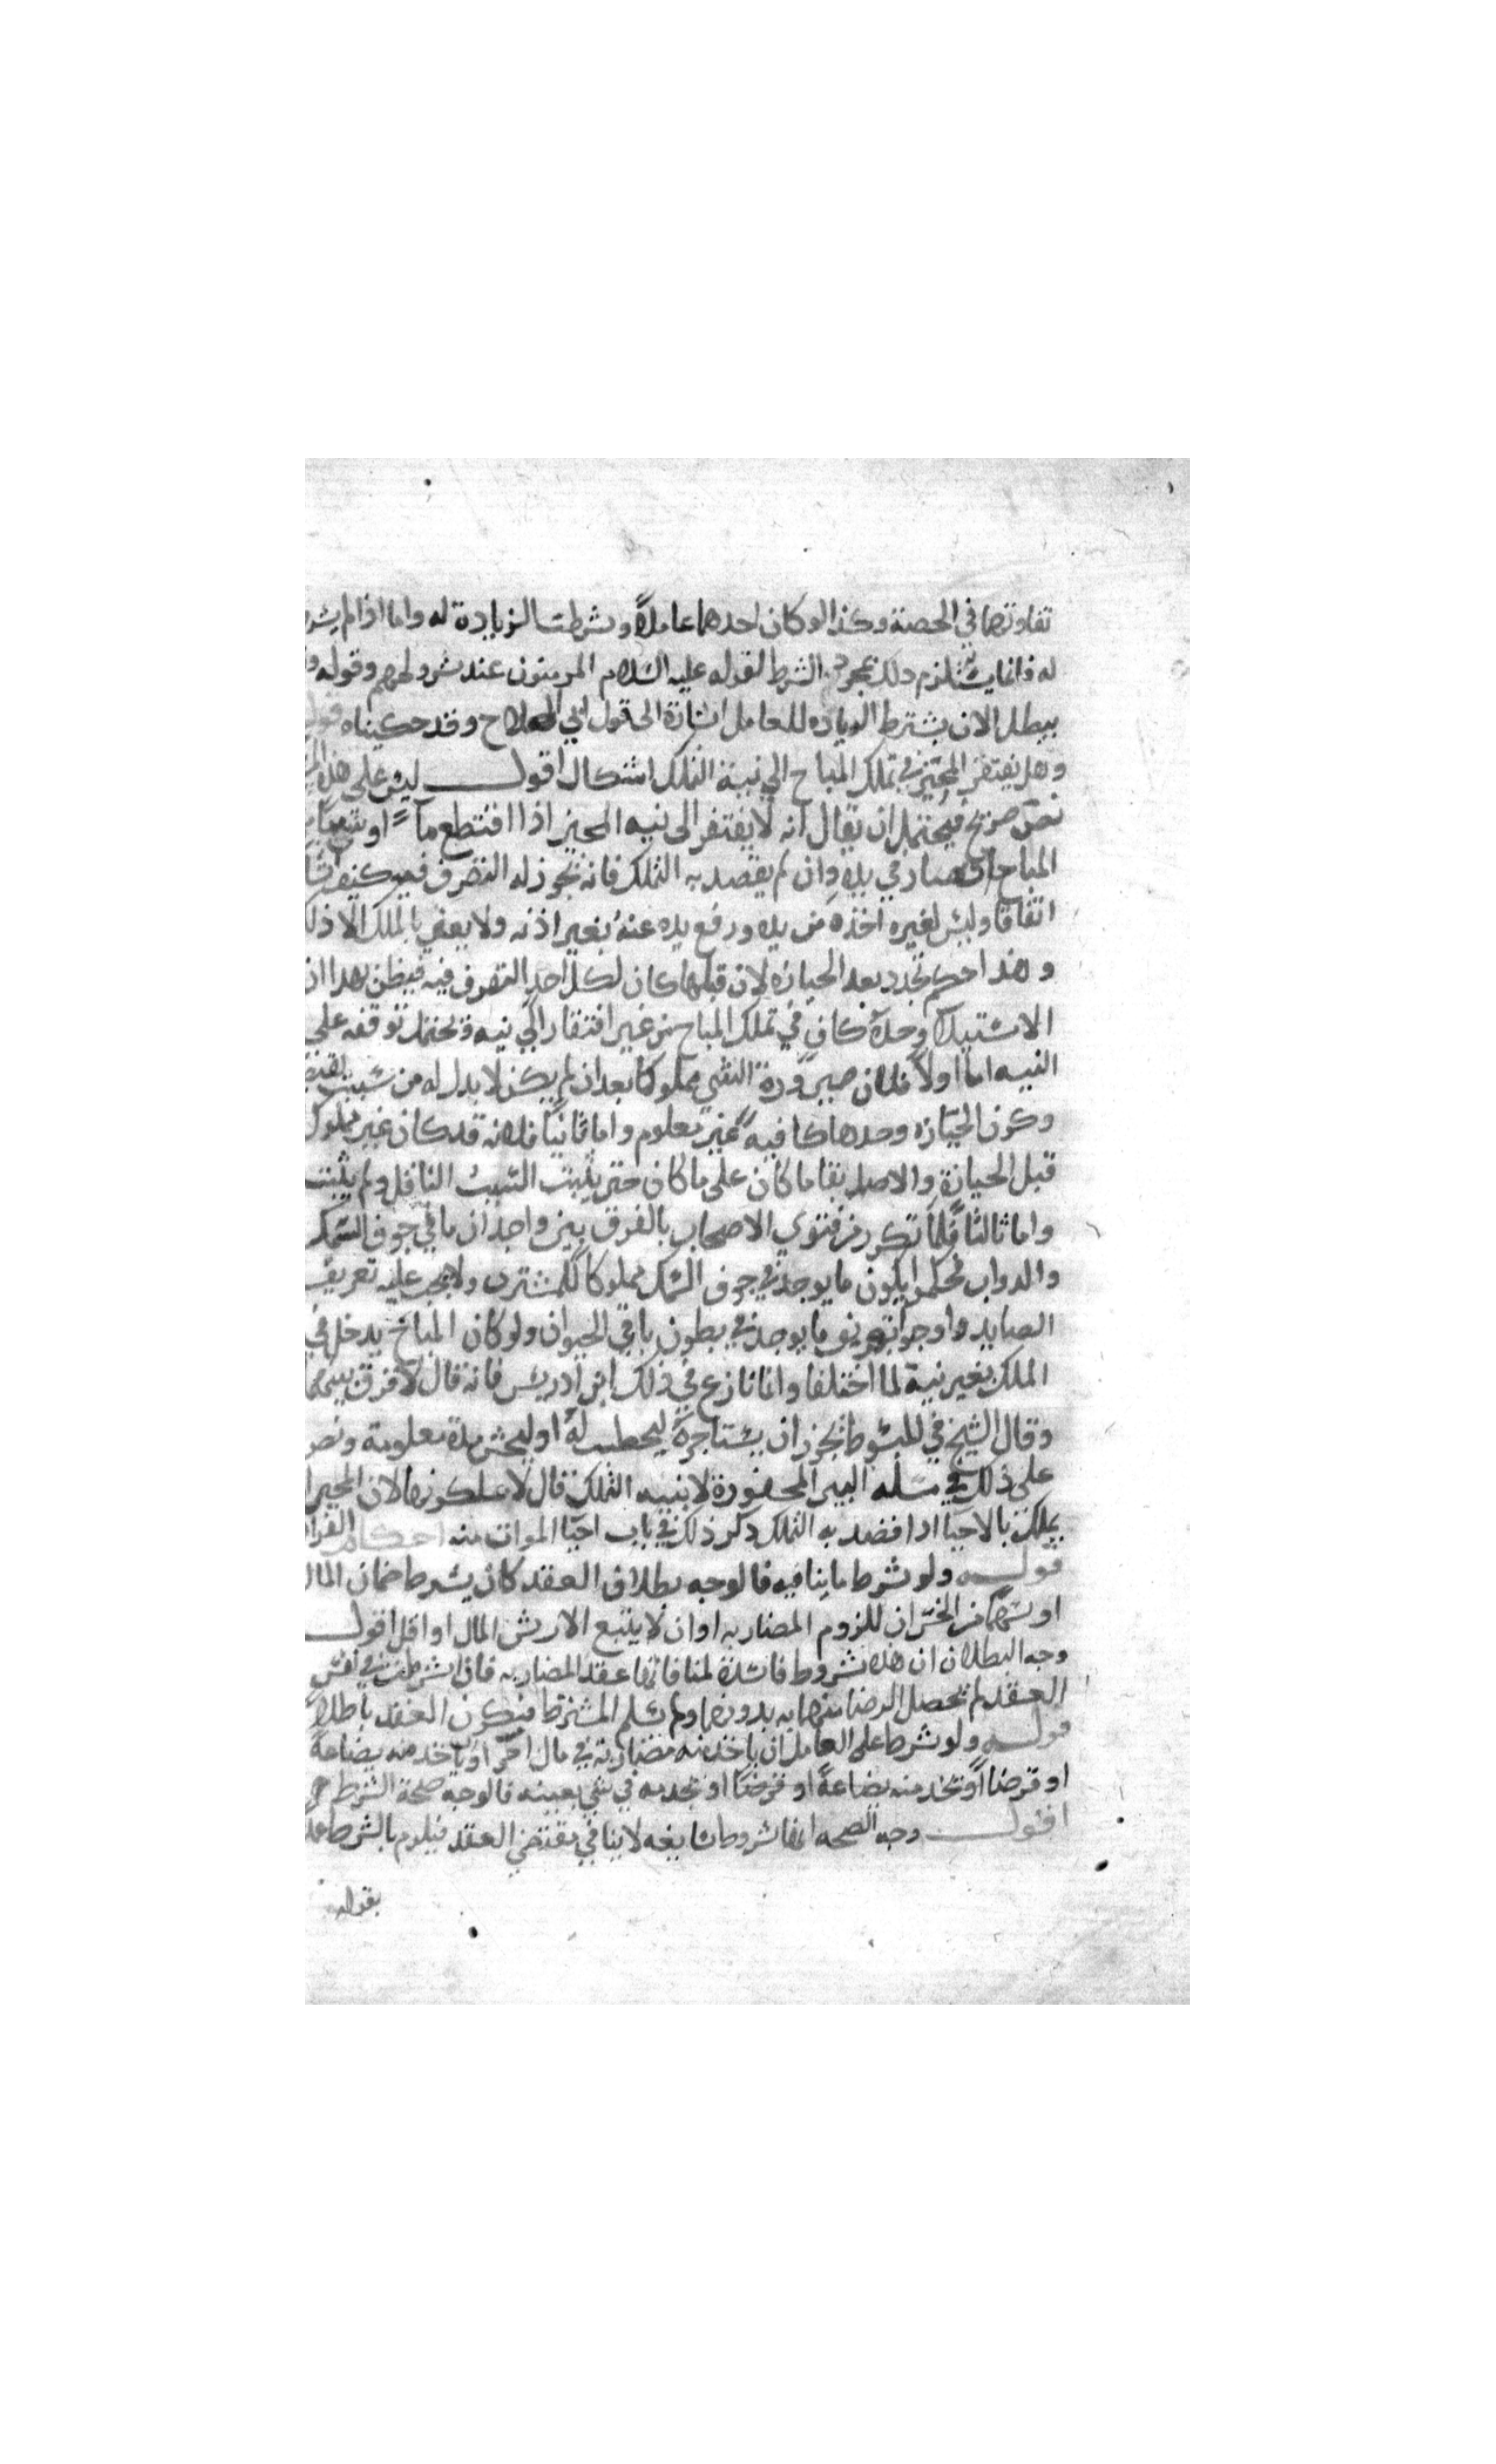 تفاوتهما في الحصة وكذا لو كان احدهما عاملاً وشرطت الزيادة له واما اذا لم يشر
له فانما يستلزم ذلك بمجرد الشرط لقوله عليه السلام المومنون عند شروطهم وقوله و
يبطل الا ان يشترط الزياده للعامل اشارة الى قول ابي الصلاح وقد حكيناه قول
وهل يفتقر المحيز في تملك المباح الى نية التملك اشكال اقول ليس على هذه
نص صريح فيحتمل ان يقال انه لا يفتقر الى نيه المحيز اذا اقتطع ماً او
المباح صار في يده وان لم يقصد به التملك فانه يجوز له التصرف فيه كيف شا
اتفاقا وليس لغيره اخذه من يده ورفع يده عنه بغير اذنه ولا يعنى بالملك الا ذلك
وهذا حكم تجدد بعد الحيازه لان قبلها كان لكل احد التصرف فيه فيظن بهذا ان
الاستيلا وحده كاف في تملك المباح من غير افتقار الى نيه ويحتمل توقفه على
النيه اما اولاً فلان صيرورة الشي مملوكا بعد ان لم يكن لا بد له من سبب يقتض
وكون الحيازه وحدها كافيه غير معلوم واما ثانيا فلانه قد كان غير مملوك
قبل الحيازة والاصل بقا ما كان على ما كان حتى يثبت السبب الناقل ولم يثبت
واما ثالثا فلما تكرر من فتوى الاصحاب بالفرق بين واجدان ما في جوف السمك
والدواب فحكموا بكون ما يوجد في جوف السمك مملوكا للمشترى ولا يجب عليه تعريف
الصايد واوجبوا تعريف ما يوجد في بطون باقي الحيوان ولو كان المباح يدخل في
الملك بغير نية لما اختلفا وانما نازع في ذلك ابن ادريس فانه قال لا فرق بينهما
وقال الشيخ في المبسوط يجوز ان يستاجره ليحطب له او ليحش مدة معلومة ونص
على ذلك في مسله البير المحفورة لا بنيه التملك قال لا يملكونها لان المحيز ا
يملك بالاحيا اذا قصد به التملك ذكر ذلك في باب احيا الموات منه احكام القرا
قوله ولو شرط ما ينافيه فالوجه بطلان العقد كان يشرط ضمان المال
او سهما من الخسران للزوم المضاربه او ان لا يتبع الا برس المال او اقل اقول
وجه البطلان ان هذه شروط فاسدة لمنافاتها عقد المضاربه فاذا شرطت في نفس
العقد لم تحصل الرضا منهما به بدونها ولم يسلم المشترط فيكون العقد باطلا
قوله ولو شرط على العامل ان ياخذ منه مضاربة في مال اخر او ياخذ منه بضاعة
او قرضا او يأخذ منه بضاعةً او قرضا او يخدمه في شي بعينه فالوجه صحة الشرط
اقول وجه الصحه انها شروط سايغه لا ينافي مقتضى العقد فيلزم بالشرط عملا
بقوله